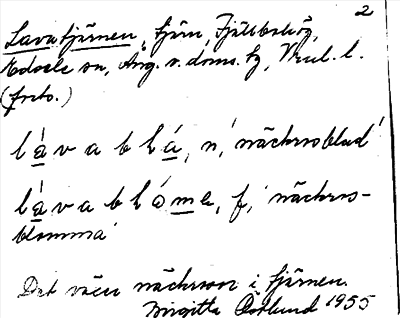 2
Lavatjärnen, tjärn, Fjällboberg,
sn, Ång. s. doms. tg, l.
(forts.)
låvablå, n, 'näckrosblad'
låvablóme, f, 'näckros-
blomma'
Det växer näckrosor i tjärnen.
Birgitta Östlund 1955